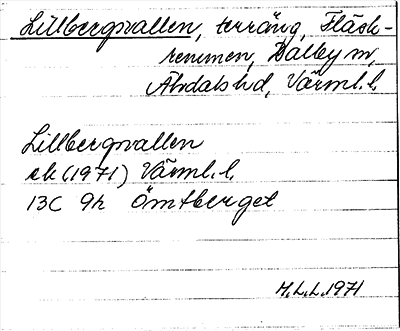 Lillbergsvallen, terräng, Fläsk-
remmen, Dalby sn,
Älvdals hd, Värml. l.
Lillbergsvallen
ek (1971) Värml. l.
13C 9h Ömtberget
M.L.L. 1971